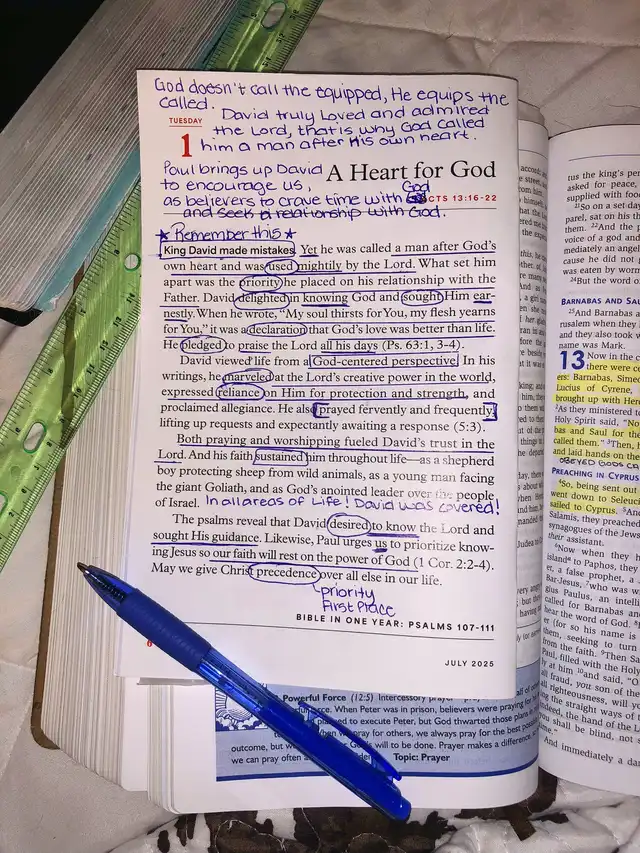 God doesn't call the equipped, He equips the
called.
David truly Loved and admired
TUESDAY
the Lord, that's why God called
1
him a man after His own heart.
Paul brings up David
A Heart for God
to encourage us,
God
as believers to crave time with
ACTS 13:16-22
and seek a relationship with God.
★ Remember this ★
King David made mistakes. Yet he was called a man after God's
own heart and was used mightily by the Lord. What set him
apart was the priority he placed on his relationship with the
Father. David delighted in knowing God and sought Him ear-
nestly. When he wrote, “My soul thirsts for You, my flesh yearns
for You,” it was a declaration that God's love was better than life.
He pledged to praise the Lord all his days (Ps. 63:1, 3-4).
David viewed life from a God-centered perspective. In his
writings, he marveled at the Lord's creative power in the world,
expressed reliance on Him for protection and strength, and
proclaimed allegiance. He also prayed fervently and frequently,
lifting up requests and expectantly awaiting a response (5:3).
Both praying and worshipping fueled David's trust in the
Lord. And his faith sustained him throughout life—as a shepherd
boy protecting sheep from wild animals, as a young man facing
the giant Goliath, and as God's anointed leader over the people
of Israel. In all areas of Life! David was covered!
The psalms reveal that David desired to know the Lord and
sought His guidance. Likewise, Paul urges us to prioritize know-
ing Jesus so our faith will rest on the power of God (1 Cor. 2:2-4).
May we give Christ precedence over all else in our life.
priority
First Place
BIBLE IN ONE YEAR: PSALMS 107-111
JULY 2025
6
Powerful Force (12:5) Intercessory prayer
force. When Peter was in prison, believers were praying for
planned to execute Peter, but God thwarted those plans
When we pray for others, we always pray for the best
outcome, but God's will to be done. Prayer makes a difference,
we can pray often Topic: Prayer
tus the king's
asked for peace,
supplied with food
21So on a set day
parel, sat on his
them. 22And the
voice of a god and
mediately an angel
cause he did not
was eaten by worms
24But the word of
BARNABAS AND SA
25And Barnabas
rusalem when they
and they also took
name was Mark.
13 Now in the
there were
ers: Barnabas, Sime
Lucius of Cyrene,
brought up with Her
2As they ministered
Holy Spirit said, “No
bas and Saul for the
called them.” 3Then,
and laid hands on the
OBEYED GODS
PREACHING IN CYPRUS
4So, being sent out
went down to Seleuci
sailed to Cyprus. 5And
Salamis, they preached
synagogues of the Jews
their assistant.
6Now when they
island to Paphos, they
er, a false prophet, a
Bar-Jesus, 7who was
ius Paulus, an intelli
called for Barnabas and
hear the word of God.
er (for so his name is
them, seeking to turn
from the faith. 9Then Sa
Paul, filled with the Holy
ly at him 10and said, “O
all fraud, you son of the
righteousness, will you
ing the straight ways of
deed, the hand of the L
you shall be blind, not
time.”
And immediately a da